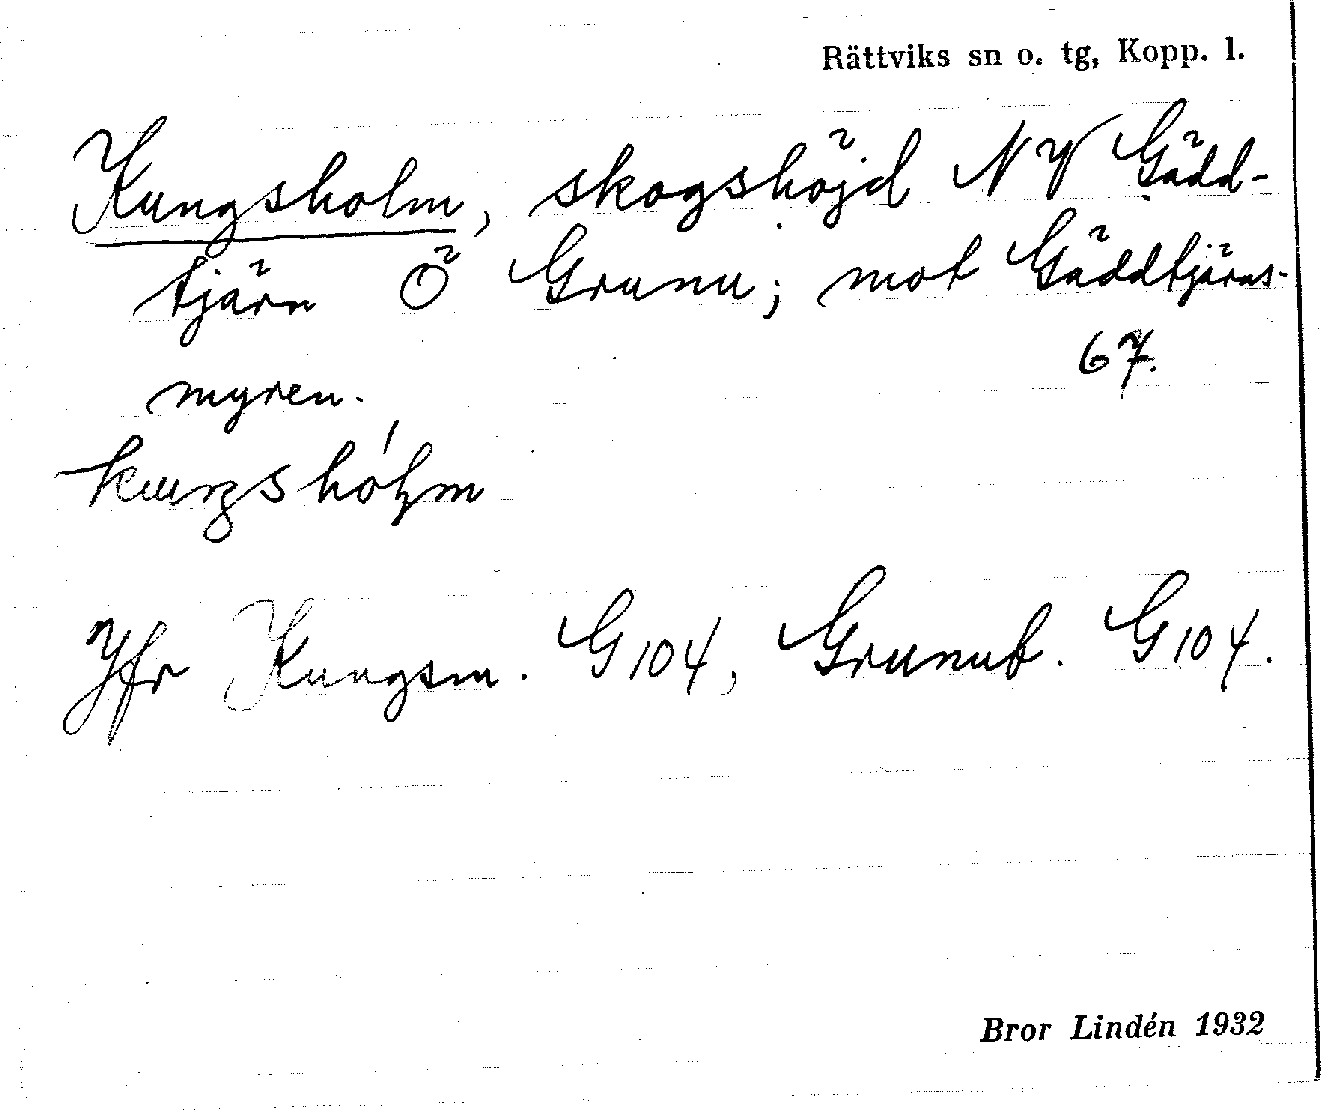 Rättviks sn o. tg, Kopp. l.
Kungsholm, skogshöjd NV Gädd-
tjärn Ö Grunu; mot Gäddtjärns-
67.
myren.
Jfr Kungsm. G104, Grunub. G104.
Bror Lindén 1932